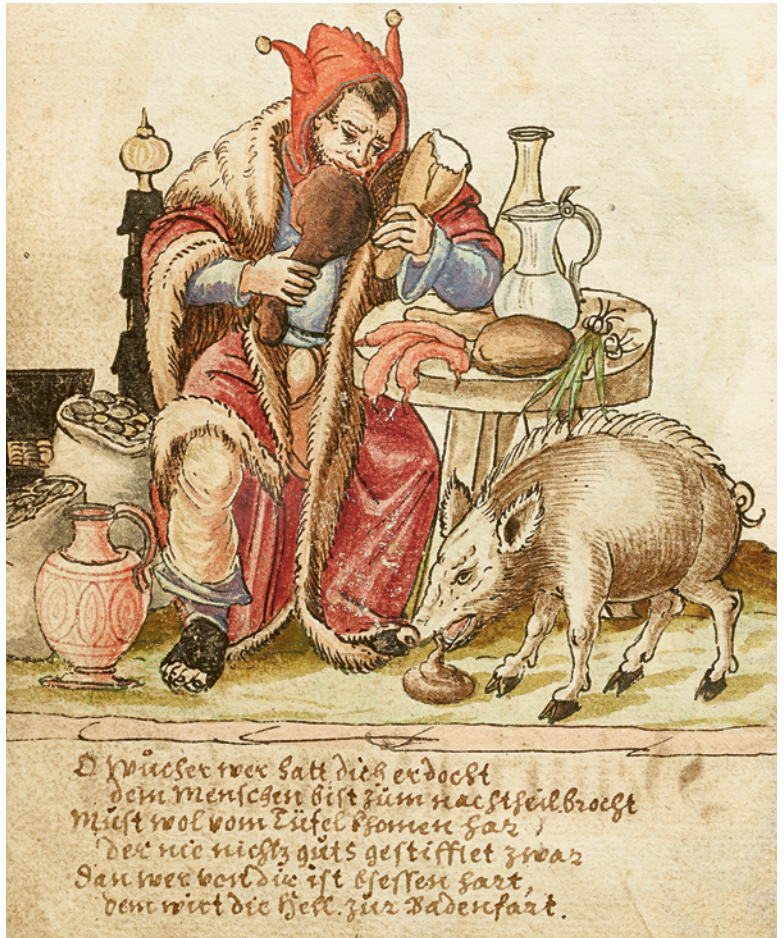 O Wůcher wer hatt dich erdocht
dem Menschen bist zům nachtheil brocht
Můst wol vom Tüfel khomen har,
der nie nichtz gůts gestifftet zwar
Dan wer von dir ist bsessen hart,
dem wirt die Hell zur Badenfart.